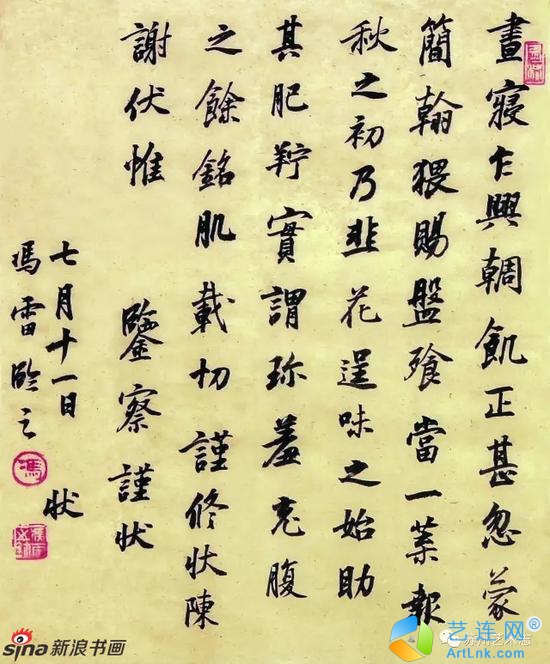 晝寢乍興輖飢正甚忽蒙
簡翰猥賜盤飧當一葉報
秋之初乃韭花逞味之始助
其肥羜實謂珎羞充腹
之餘銘肌載切謹修狀陳
謝伏惟 鑒察謹狀
七月十一日 狀
馮雷臨之
馮
sina新浪书画
苏州艺术志
艺连网
ArtLnk.com